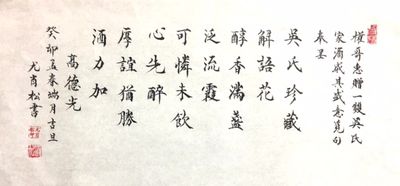 權哥惠贈一
吳氏
家酒感其盛意覓句
吳氏珍藏
解語花
醇香滿盞
泛流霞
可憐未飲
心先醉
厚誼猶勝
酒力加
高德光
癸卯孟春端月吉旦
尤肖松書